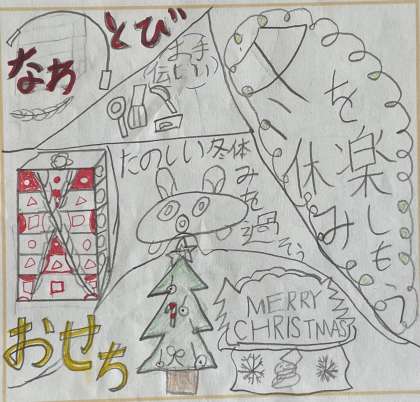 なわ
とび
お手
(伝い)
冬休み
を楽しもう
たのしい冬体
みを過
そう
おせち
MERRY
CHRISTMAS